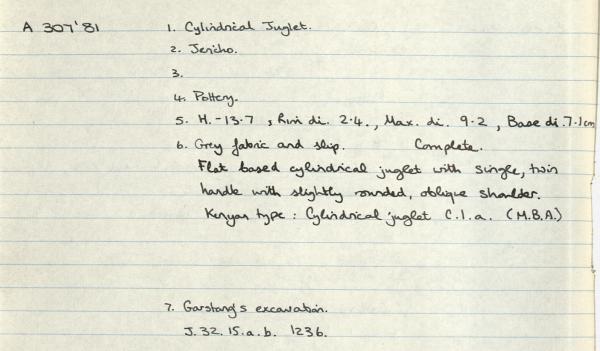 A 307'81 1. Cylindrical Juglet.
2. Jericho.
3.
4. Pottery.
5. H. - 13.7, Rim di. 2.4., Max. di. 9.2, Base di. 7.1cm
6. Grey fabric and slip. Complete.
Flat based cylindrical juglet with single, twin
handle with slightly rounded, oblique shoulder.
Kenyan type: Cylindrical juglet C.1.a. (M.B.A.)
7. Garstang's excavation.
J.32.15.a.b. 1236.